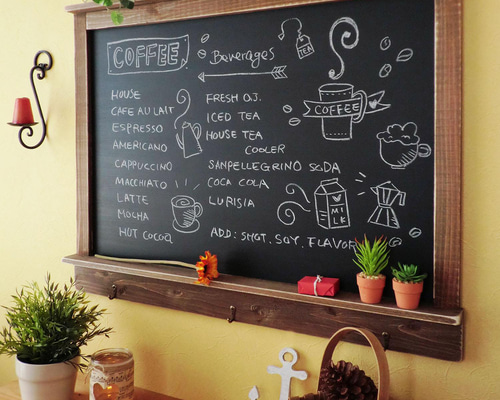 COFFEE
HOUSE
CAFE AU LAIT
ESPRESSO
AMERICANO
CAPPUCCINO
MACCHIATO
LATTE
MOCHA
HOT COCOA
Beverages
TEA
FRESH O.J.
ICED TEA
HOUSE TEA
COOLER
SANPELLEGRINO SODA
COCA COLA
LURISIA
ADD: SHOT, SOY, FLAVOR
COFFEE
MI
LK